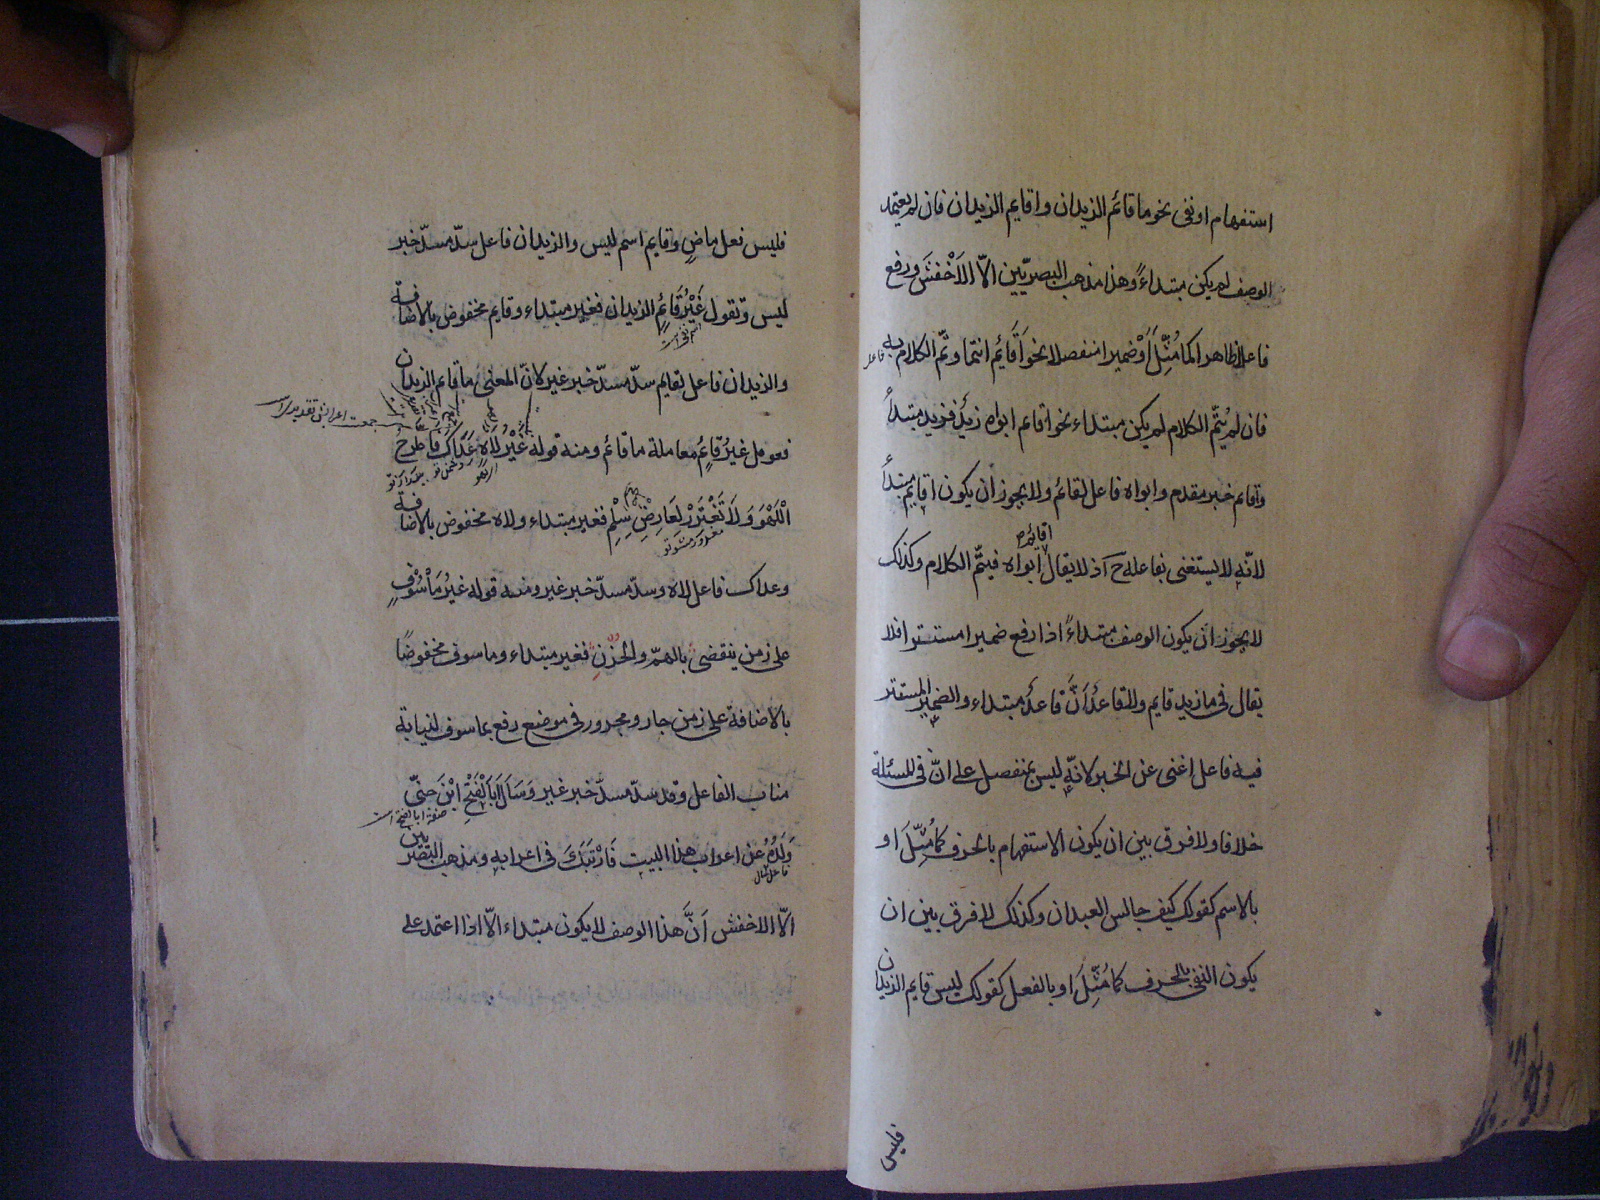 استفهام او نفى نحو ما قائم الزيدان واقايم الزيدان فان لم يعتمد
الوصف لم يكن مبتداءً وهذا مذهب البصريّين الّا الاَخْفَشَ ورفع
فاعلا ظاهرا كما مُثِّلَ اَوْ ضميرا منفصلا نحو اَقَائِم انتما وتمّ الكلام به
فان لم يُتمّ الكلام لم يكن مبتداء نحو اقايم ابواه زيدٌ فزيد مبتدأٌ
وقايم خبر مقدم وابواه فاعل لقائم ولا يجوز ان يكون اقايم مبتدأً
لانّه لا يستغنى بفاعله ح اذ لا يقال اقائم ابواه فيتمّ الكلام وكذلك
لا يجوز ان يكون الوصف مبتداءً اذا رفع ضميرا مستترا فلا
يقال فى ما زيد قايم ولا قاعدٌ اَنَّ قاعدٌ مبتداء والضمير المستتر
فيه فاعل اغنى عن الخبر لانّه ليس بمنفصل على انّ فى المسئلة
خلافا ولا فرق بين ان يكون الاستفهام بالحرف كما مُثِّلَ او
بالاسم كقولك كيف جالس العبدان وكذلك لا فرق بين ان
يكون النفى بالحرف كما مُثِّلَ او بالفعل كقولك ليس قايم الزيدان
فليس
فليس فعل ماضٍ وقايم اسم ليس والزيدان فاعل سدّ مسدّ خبر
ليس وتقول غَيْرُ قَائِمٍ الزيدان فغير مبتداء وقايم مخفوض بالاضافة
والزيدان فاعل لقايم سدّ مسدّ خبر غير لانّ المعنى ما قايم الزيدان
فعومل غيرُ قَايِمٍ معاملة ما قائم ومنه قوله غَيْرُ لَاهٍ عَدَاكَ فَاطَّرِحْ
اللَّهْوَ وَلَا تَغْتَرَرْ لِعَارِضِ سِلْمٍ فغير مبتداء ولاه مخفوض بالاضافة
وعداك فاعل للاه وسدّ مسدّ خبر غير ومنه قوله غيرُ مَأْسُوْفٍ
على زمن ينقضى بالهمّ والحُزْنِ فغير مبتداء وماسوف مخفوضًا
بالاضافة على زمن جار ومجرور فى موضع رفع بماسوف لنيابة
مناب الفاعل وقد سدّ مسدّ خبر غير وَسَاَلَ اَبَا الْفَتْحِ ابْنَ جِنّى
وَلَدُهُ عن اعراب هذا البيت فَارْتَبَكَ فى اعرابه ومذهب البصريين
الّا الاخفش اَنَّ هذا الوصف لا يكون مبتداء الّا اذا اعتمد على